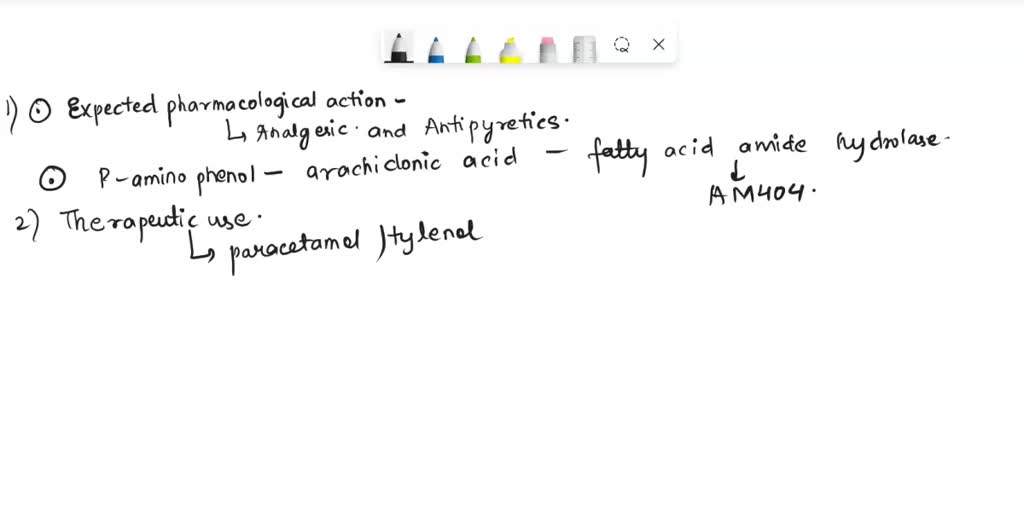 1) ⊙ Expected pharmacological action -
↳ Analgesic. and Antipyretics.
⊙ P-amino phenol - arachiclonic acid - fatty acid amide hydrolase.
↓
AM404.
2) Therapeutic use.
↳ paracetamol /tylenol